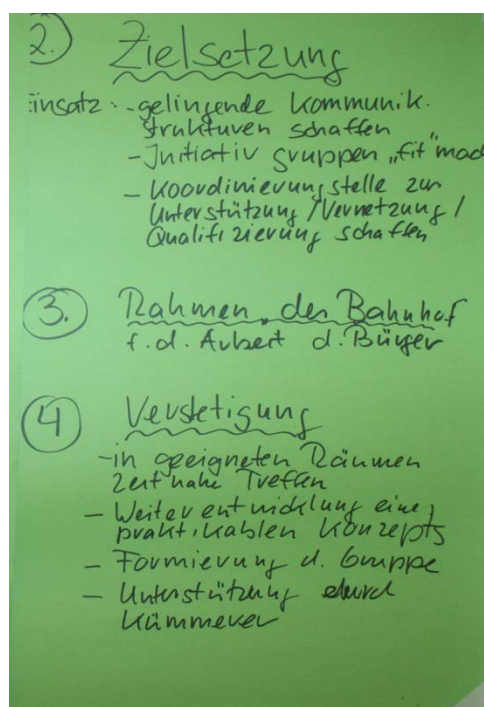 2.) Zielsetzung
Einsatz: - gelingende Kommunik.
strukturen schaffen
- Initiativ gruppen „fit" mad
- Koordinierungsstelle zur
Unterstützung / Vernetzung /
Qualifizierung schaffen
3. Rahmen der Bahnhof
f. d. Arbeit d. Bürger
4 Verstetigung
- in geeigneten Räumen
zeitnahe Treffen
- Weiterentwicklung eines
praktikablen Konzepts
- Formierung d. Gruppe
- Unterstützung durch
Kümmerer